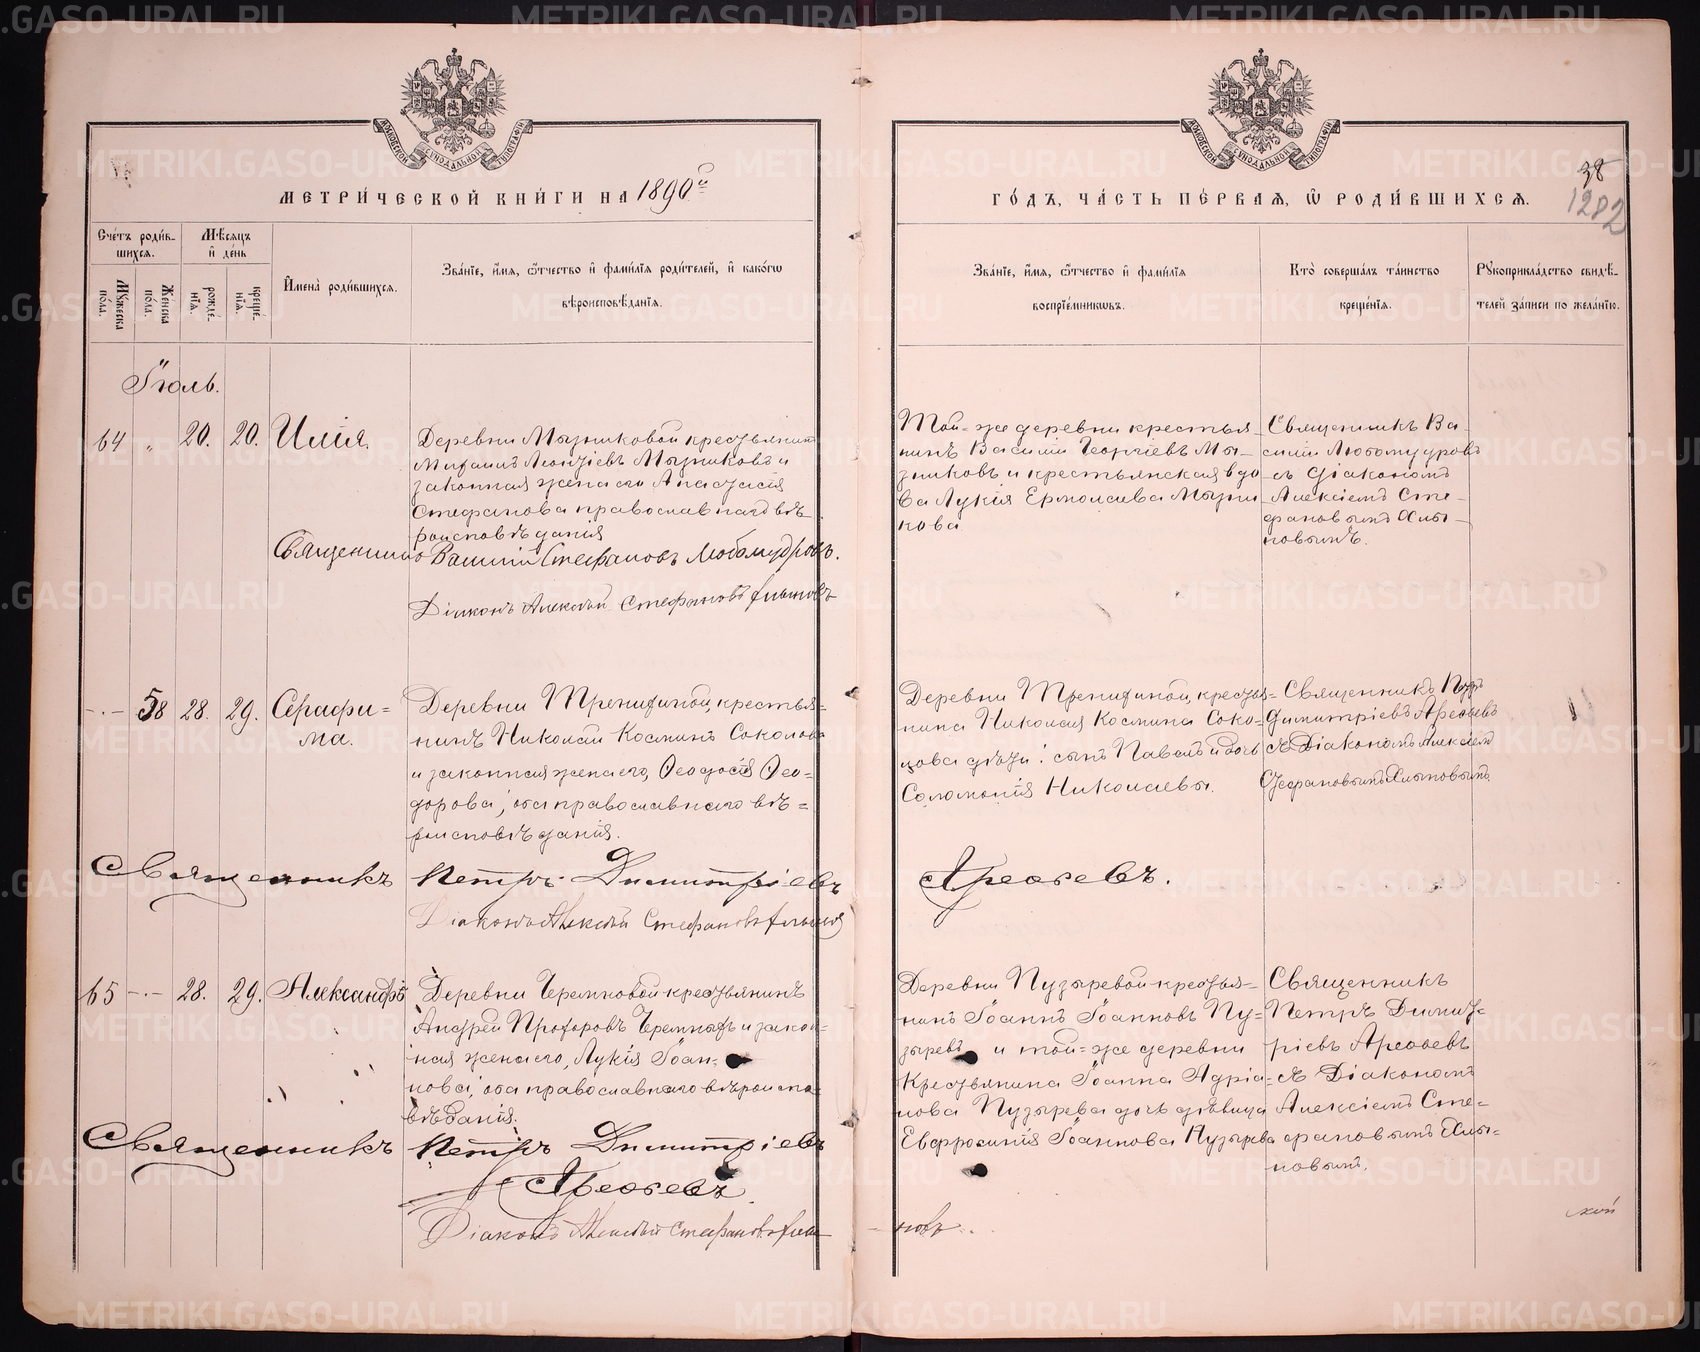 МЕТРИ́ЧЕСКОЙ КНИ́ГИ НА 1890й
Счетъ роди́в-
шихся.
Мꙋжеска пола.
Же́нска пола.
Мѣсяцъ
и҆ де́нь
рожде́нїя.
креще́нїя.
И҆мена̀ роди́вшихся.
Зва́нїе, и҆́мя, ѻ҆́тчество и҆ фами́лїя роди́телей, и҆ како́гѡ
вѣроисповѣ́данїя.
Іюль.
64 " 20. 20. Илія.
Деревни Мызниковой крестьянинъ
Михаилъ Леонтіевъ Мызниковъ и
законная жена его Анастасія
Стефанова православнаго вѣ-
роисповѣданія
Священникъ Василій Стефановъ Любомудровъ.
Діаконъ Алексѣй Стефановъ Хлыновъ
-.- 58 28. 29. Серафи-
ма.
Деревни Тренихиной, крестья-
нинъ Николай Косминъ Соколовъ
и законная жена его, Ѳеодосія Ѳео-
дорова; оба православнаго вѣ-
роисповѣданія.
Священникъ Петръ Димитріевъ
Діаконъ Алексѣй Стефановъ Хлыновъ
65 -.- 28. 29. Александръ
Деревни Черемновой крестьянинъ
Андрей Прохоровъ Черемныхъ и закон-
ная жена его, Лукія Іоан-
нова; оба православнаго вѣроиспо-
вѣданія.
Священникъ Петръ Димитріевъ
Арефьевъ
Діаконъ Алексѣй Стефановъ Хлы-
38
1282
ГО́ДЪ, ЧА́СТЬ ПЕ́РВАЯ, Ѡ҆ РОДИ́ВШИХСЯ.
Зва́нїе, и҆́мя, ѻ҆́тчество и҆ фами́лїя
воспрїе́мникѡвъ.
Кто̀ соверша́лъ та́инство
креще́нїя.
Рꙋкоприкла́дство свидѣ́-
телей за́писи по жела́нїю.
Той-же деревни крестья-
нинъ Василій Георгіевъ Мы-
зниковъ и крестьянская вдо
ва Лукія Ермолаева Мызни
кова
Священникъ Ва-
силій Любомудровъ
съ діакономъ
Алексіемъ Сте-
фановымъ Хлы-
новымъ.
Деревни Тренихиной, крестья-
нина Николая Космина Соко-
лова дѣти: сынъ Павелъ и дочь
Соломонія Николаевы.
Священникъ Петръ
Димитріевъ Арефьевъ
съ Діакономъ Алексіемъ
Стефановымъ Хлыновымъ.
Арефьевъ.
Деревни Пузыревой крестья-
нинъ Іоаннъ Іоанновъ Пу-
зыревъ и той-же деревни
крестьянина Іоанна Адріа-
нова Пузырева дочь дѣвица
Евфросинія Іоаннова Пузырева
Священникъ
Петръ Димит-
ріевъ Арефьевъ
съ Діакономъ
Алексіемъ Сте-
фановымъ Хлы-
новымъ.
новъ.